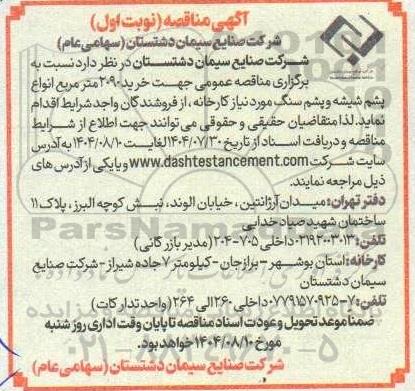 آگهی مناقصه (نوبت اول)
شرکت صنایع سیمان دشتستان (سهامی عام)
شرکت صنایع سیمان دشتستان در نظر دارد نسبت به
برگزاری مناقصه عمومی جهت خرید ۲۰۹۰ متر مربع انواع
پشم شیشه و پشم سنگ مورد نیاز کارخانه ، از فروشندگان واجد شرایط اقدام
نماید. لذا متقاضیان حقیقی و حقوقی می توانند جهت اطلاع از شرایط
مناقصه و دریافت اسناد از تاریخ ۱۴۰۴/۰۷/۳۰ لغایت ۱۴۰۴/۰۸/۱۰ به آدرس
سایت شرکت www.dashtestancement.com و یا یکی از آدرس های
ذیل مراجعه نمایند.
دفتر تهران: میدان آرژانتین ، خیابان الوند، نبش کوچه البرز ، پلاک ۱۱
ساختمان شهید صیاد خدایی
تلفن: ۰۲۱۹۲۰۰۳۰۱۳ داخلی ۷۰۵-۲۰۴ (مدیر بازرگانی)
کارخانه: استان بوشهر - برازجان - کیلومتر ۷ جاده شیراز - شرکت صنایع
سیمان دشتستان
تلفن: ۷-۰۷۷۹۱۵۷۰۹۲۵ داخلی ۲۶۰ الی ۲۶۴ (واحد تدارکات)
ضمنا موعد تحویل و عودت اسناد مناقصه تا پایان وقت اداری روز شنبه
مورخ ۱۴۰۴/۰۸/۱۰ خواهد بود.
شرکت صنایع سیمان دشتستان (سهامی عام)